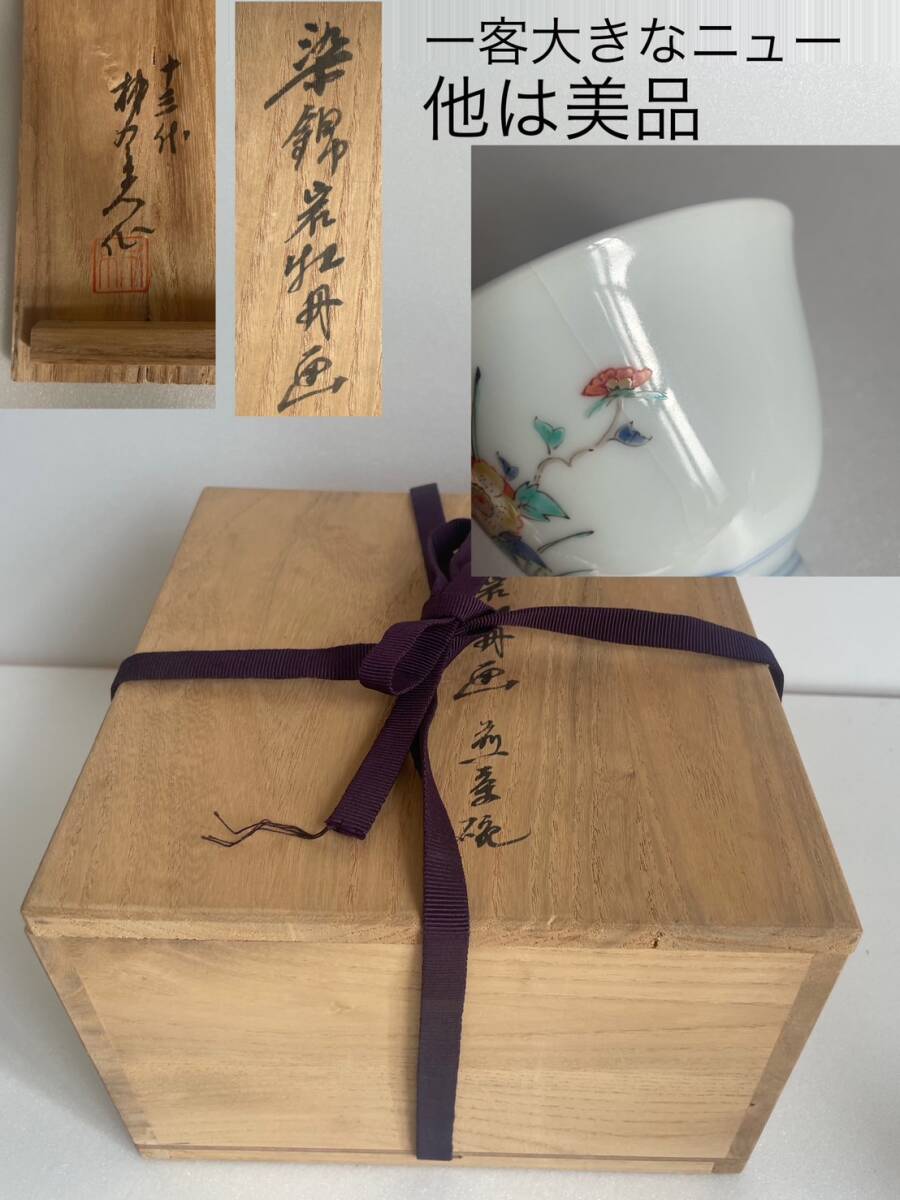 一客大きなニュー
他は美品
十三代
柿右衛門作
染錦岩牡丹画
岩牡丹画 煎茶碗